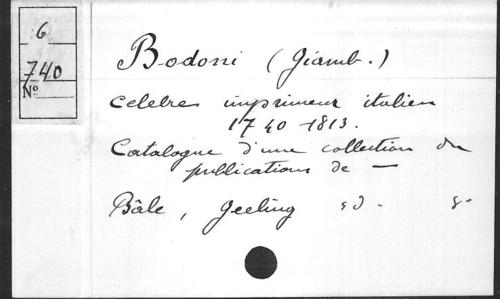 6
740
No
Bodoni (Giamb.)
celebre imprimeur italien
1740-1813.
Catalogue d'une collection de
publications de —
Bâle, Geering s d. 8.